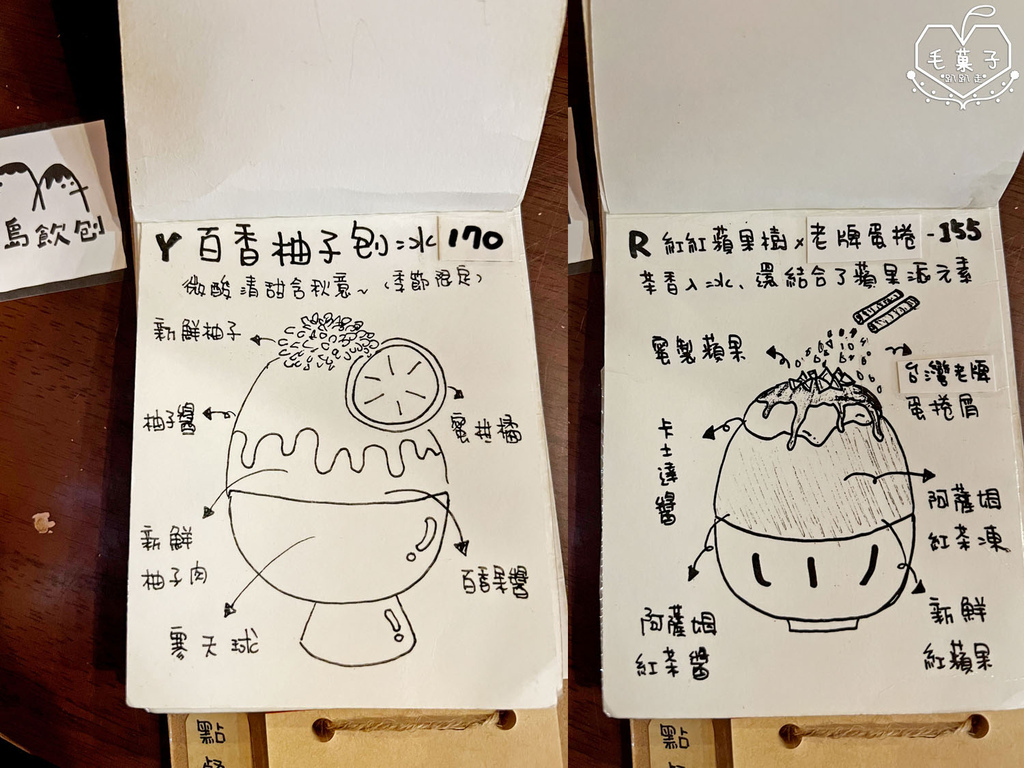 島飲刨
Y 百香柚子刨冰 170
微酸清甜含秋意~(季節限定)
新鮮柚子
柚子醬
蜜柑橘
新鮮
柚子肉
百香果醬
寒天球
點
毛菓子
趴趴走
R 紅紅蘋果樹 x 老牌蛋捲 -155
茶香入冰、還結合了蘋果派元素
蜜製蘋果
台灣老牌
蛋捲屑
卡士達醬
阿薩姆
紅茶凍
阿薩姆
紅茶醬
新鮮
紅蘋果
點